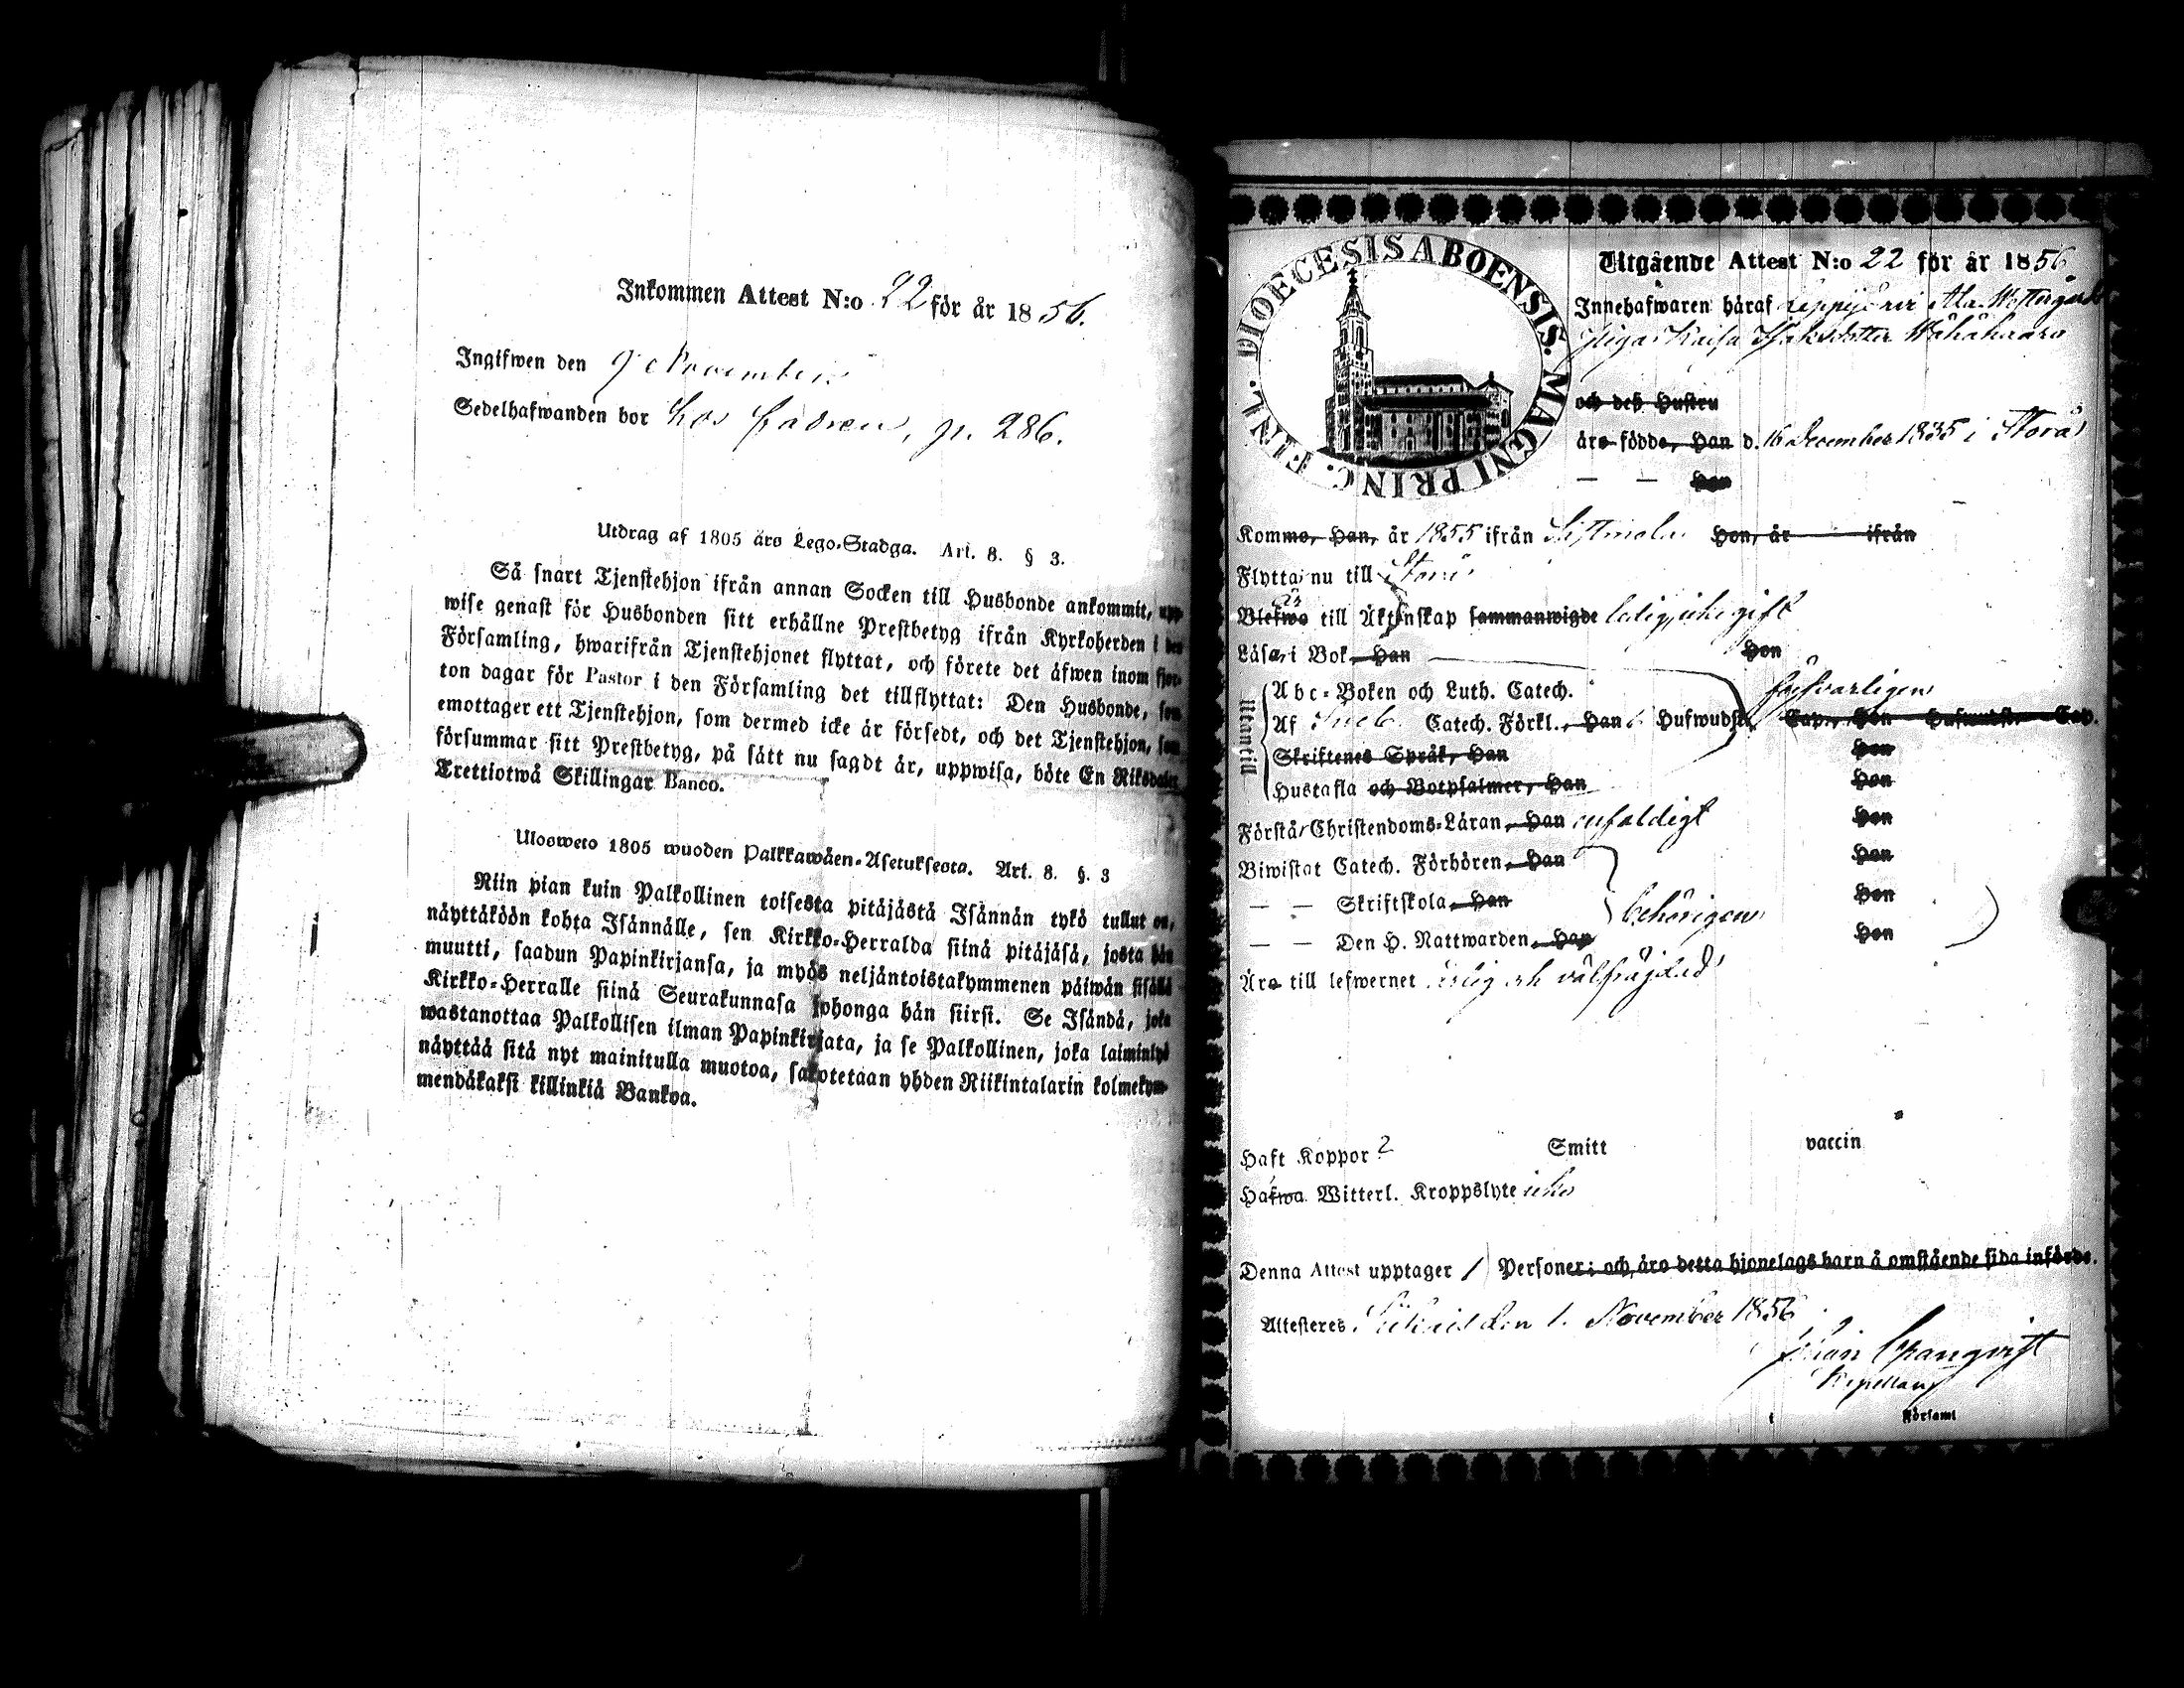 Inkommen Attest N:o 22 för år 1856.
Ingifwen den 9 November
Sedelhafwanden bor hos fadren, p. 286.
Utdrag af 1805 års Lego-Stadga. Art. 8. § 3.
Så snart Tjenstehjon ifrån annan Socken till Husbonde ankommit, upp-
wise genast för Husbonden sitt erhållne Prestbetyg ifrån Kyrkoherden i den
Församling, hwarifrån Tjenstehjonet flyttat, och förete det äfwen inom fjor-
ton dagar för Pastor i den Församling det tillflyttat: Den Husbonde, som
emottager ett Tjenstehjon, som dermed icke är försedt, och det Tjenstehjon, som
försummar sitt Prestbetyg, på sätt nu sagdt är, uppwisa, böte En Riksdaler
Trettiotwå Skillingar Banco.
Ulosweto 1805 wuoden Palkkawäen-Asetuksesta. Art. 8. §. 3
Niin pian kuin Palkollinen toisesta pitäjästä Isännän tykö tullut on,
näyttäköön kohta Isännälle, sen Kirkko-Herralda siinä pitäjäsä, josta hän
muutti, saadun Papinkirjansa, ja myös neljäntoistakymmenen päiwän sisällä
Kirkko-Herralle siinä Seurakunnasa johonga hän siirsi. Se Isändä, joka
wastanottaa Palkollisen ilman Papinkirjata, ja se Palkollinen, joka laiminlyö
näyttää sitä nyt mainitulla muotoa, sakotetaan yhden Riikintalarin kolmekym-
mendäkaksi killinkiä Bankoa.
DIOECESIS ABOENSIS. MAGNI PRINC. FINL.
Utgående Attest N:o 22 för år 1856
Innehafwaren häraf Leppijärvi
Pigan Kaisa Isaksdotter
och deß Hustru
äro födde, Han d. 16 December 1835 i Storå
— — Hon
Kommo, Han, år 1855 ifrån Hon, år ifrån
Flytta nu till Storå
är
Blefwo till Äktenskap sammanwigde ledig, icke gift
Läsa i Bok, Han Hon
Utantill
Abc-Boken och Luth. Catech. försvarligen
Af Sveb. Catech. Förkl., Han 6 Hufwudst. Cap., Hon Hufwudst. Cap.
Skriftenes Språk, Han Hon
Hustafla och Botpsalmer, Han Hon
Förstå Christendoms-Läran, Han enfaldigt Hon
Biwistat Catech. Förhören, Han Hon
— — Skriftskola, Han behörigen Hon
— — Den H. Nattwarden, Han Hon
Äro till lefwernet ärlig och välfräjdad
Haft Koppor 2 Smitt vaccin
Hafwa Witterl. Kroppslyte icke
Denna Attest upptager 1 Personer; och äro detta hjonelags barn å omstående sida införde.
Attesteres den 1. November 1856
Johan Granqvist
Kapellan
Församl